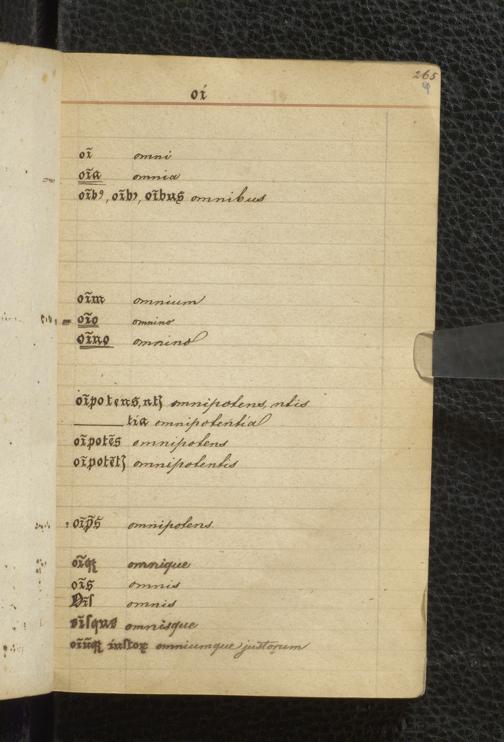 265
9
oi
oı̃ omni
oı̃a omnia
oı̃bꝰ, oı̃bꝰ, oı̃bus omnibus
oı̃m omnium
oı̃o omnino
oı̃no omnino
oı̃potens, ntꝭ omnipotens, ntis
tia omnipotentia
oı̃potẽs omnipotens
oı̃potẽtꝭ omnipotentis
oı̃p̃s omnipotens
oı̃qꝫ omnique
oı̃s omnis
Oı̃ſ omnis
oı̃ſque omnisque
oı̃ũqꝫ iustoꝝ omniumque justorum